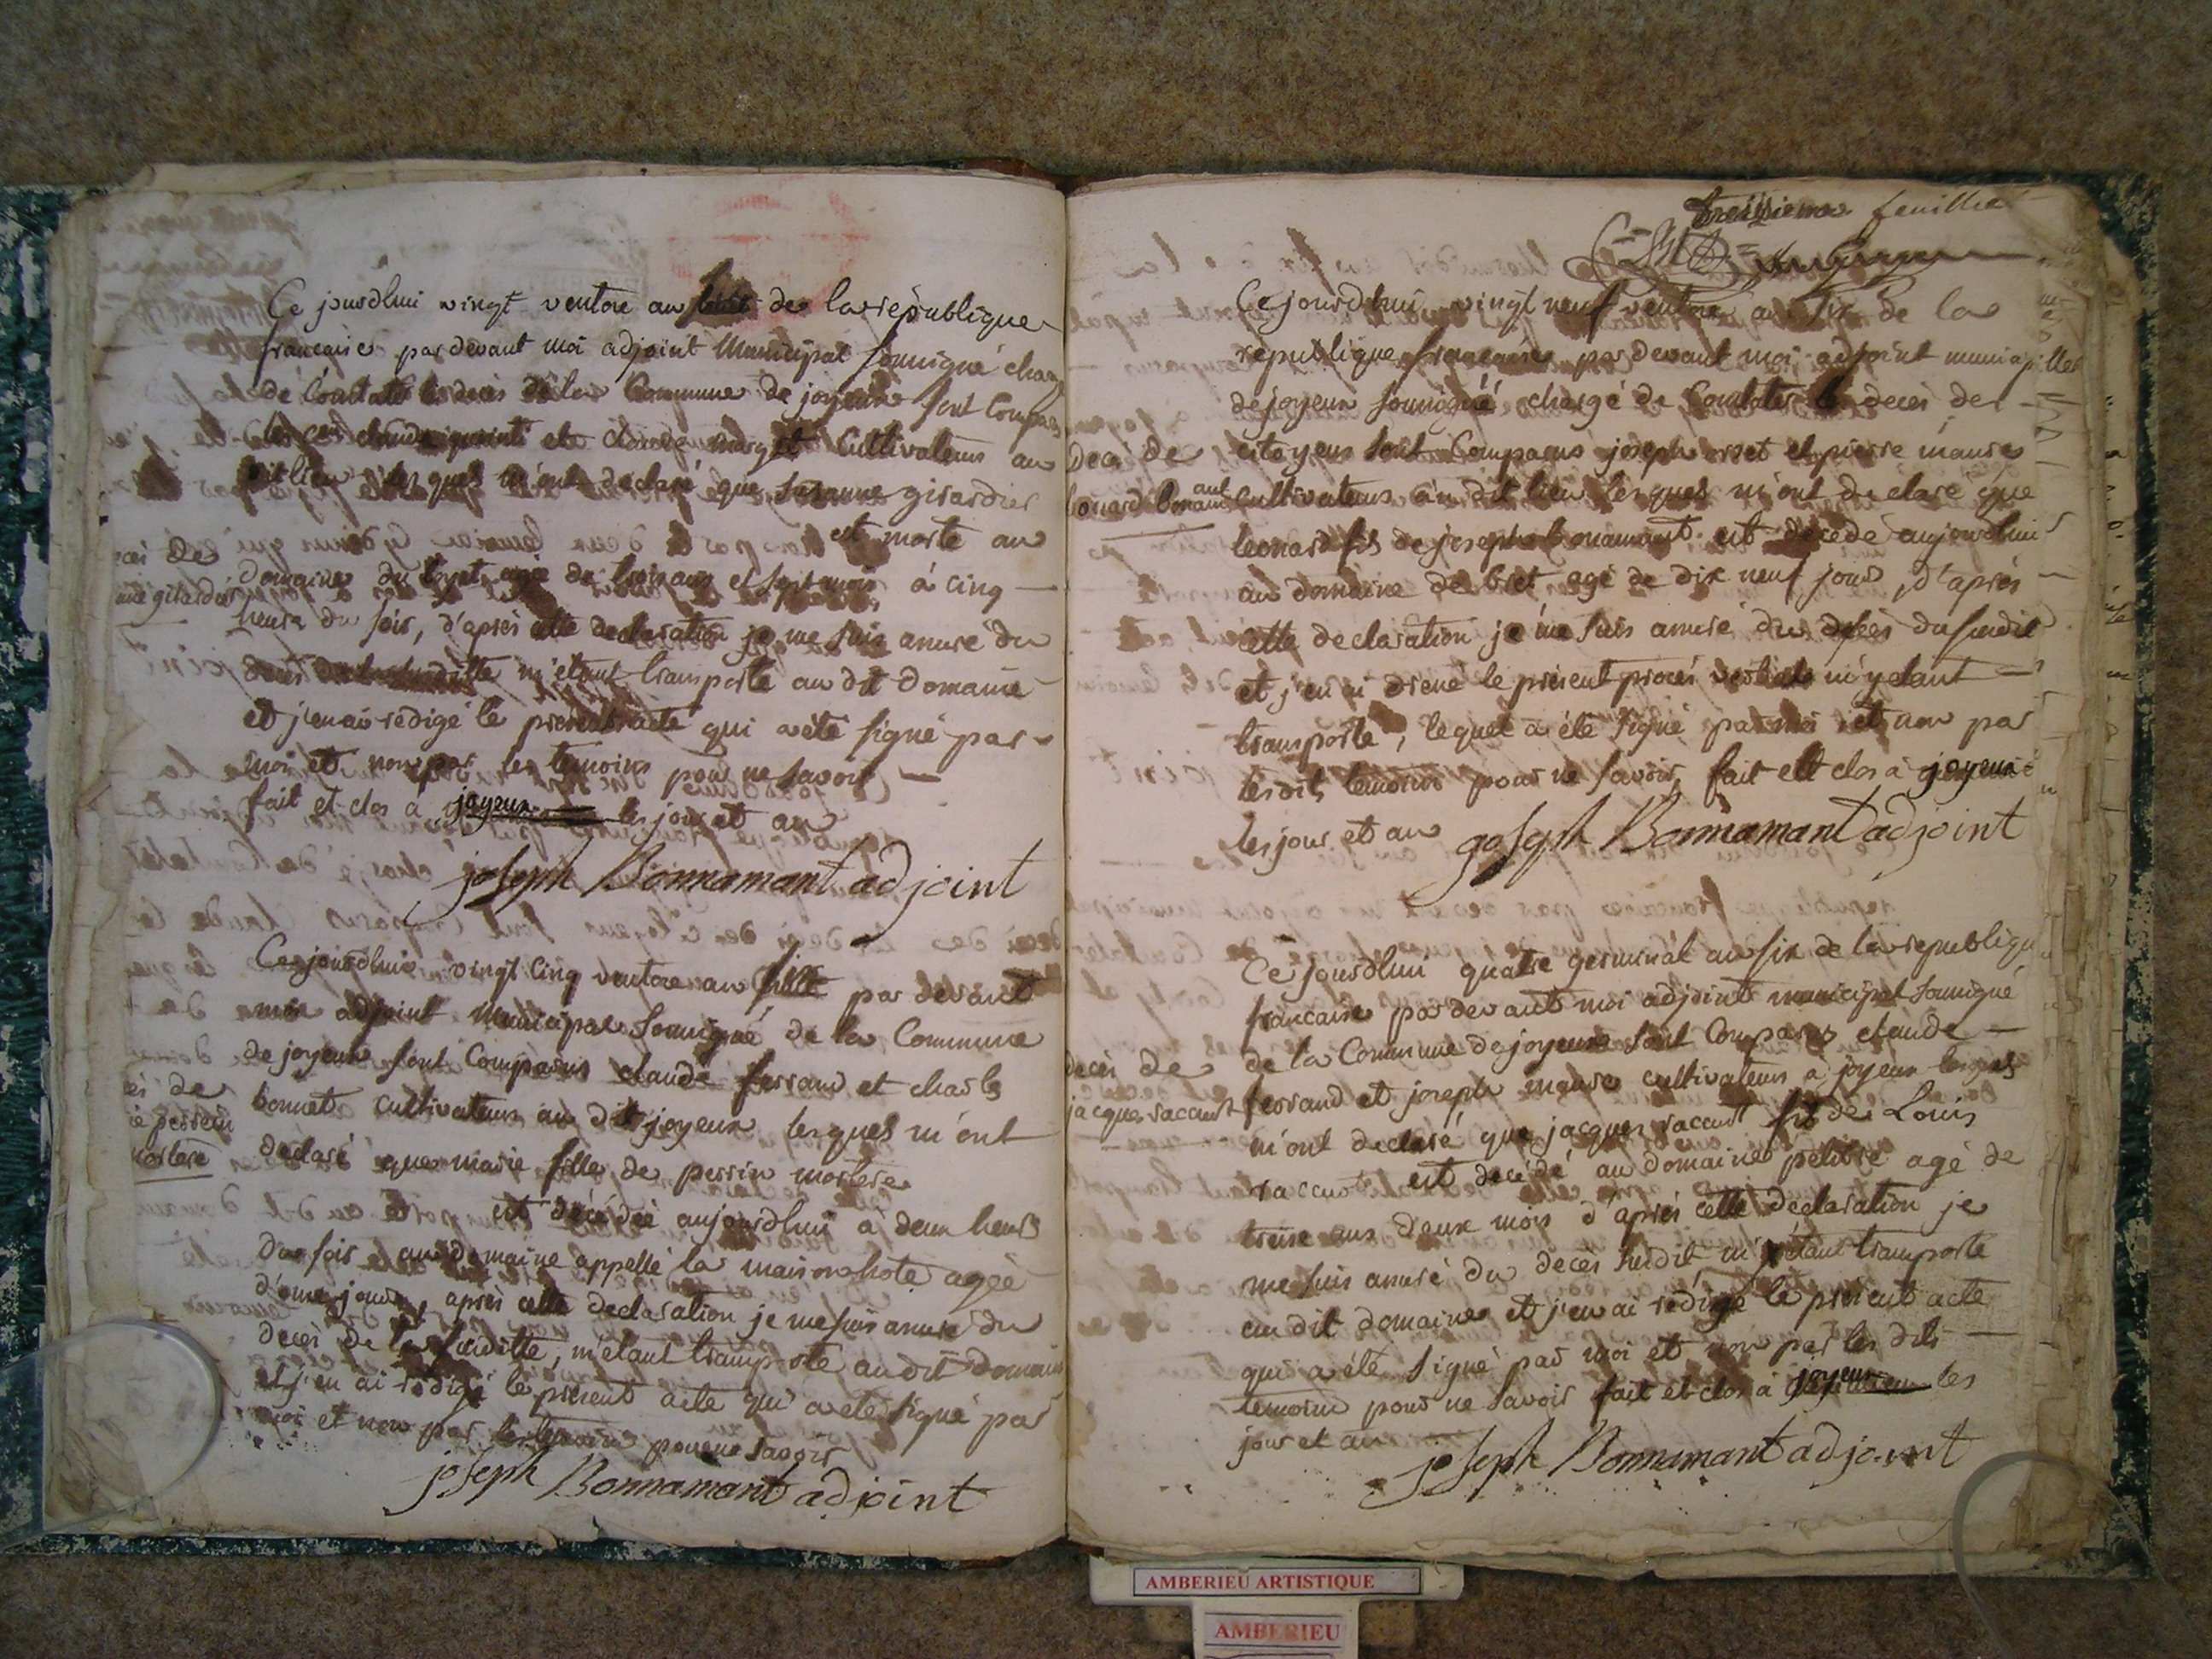 Ce jourdhui vingt ventose an de la république
francaise par devant moi adjoint Municipal soussigné charg
de Constater les deces de la Commune de joyeux sont Comparus
les cen claude et claude Cultivateurs au
dit lieu lesquels m'ont declaré que susanne girardier
est morte au
ces de
domaine du agé de trois ans et sept mois à cinq
girardier
heures du soir, d'après cette declaration je me suis assuré du
decès de la susditte m'étant transporté au dit domaine
et j'en ai redigé le present acte qui a été signé par
moi et non par les temoins pour ne savoir
fait et clos a joyeux les jour et an
joseph Bonnamant adjoint
Ce jourdhui vingt cinq ventose an six par devant
moi adjoint Municipal soussigné de la Commune
de joyeux sont Comparus claude ferrand et charle
ès de
bonnet cultivateurs au dit joyeux lesquels m'ont
ie perrin
declaré que marie fille de perrin mortere
mortere
est décédée aujourdhui a deux heurs
du soir au domaine appellé la maison hote aggé
d'onze jours, après cette declaration je me suis assuré du
deces de la susditte, m'etant transporté au dit domaine
et j'en ai rédigé le présent acte qui a ete signé par
moi et non par les temoins pour ne savoir
joseph Bonnamant adjoint
treizieme feuillet
Ce jourdhui vingt neuf ventose an six de la
republique francaise par devant moi adjoint municipalle
de joyeux soussigné chargé de Constater le decès des
Decè de
citoyens sont Comparus joseph orset et pierre maure
léonard bonamant
cultivateurs au dit lieu lesquels m'ont declaré que
leonard fils de joseph bonamant est décédé aujourdhui
au domaine de bret agé de dix neuf jours, d'après
cette declaration je me suis assuré du decès du susdit
et j'en ai dressé le present procès verbale m'y etant
transporté, lequel a été signé par moi et non par
lesdits temoins pour ne savoir, fait et clos à joyeux
les jour et an joseph Bonnamant adjoint
Ce jourdhui quatre germinal an six de la republique
francaise par devant moi adjoint municipal soussigné
decès de
de la Commune de joyeux sont Comparus claude
jacques raccurt
ferrand et joseph maure cultivateurs a joyeux lesquels
m'ont declaré que jacques raccurt fils de Louis
raccurt est décédé au domaine agé de
treise ans deux mois d'après cette déclaration je
me suis assuré du decès susdit, m'y étant transporté
au dit domaine et j'en ai rédigé le présent acte
qui a été signé par moi et non par les dits
temoins pour ne savoir fait et clos à joyeux les
jour et an
joseph Bonnamant adjoint
AMBERIEU ARTISTIQUE
AMBERIEU